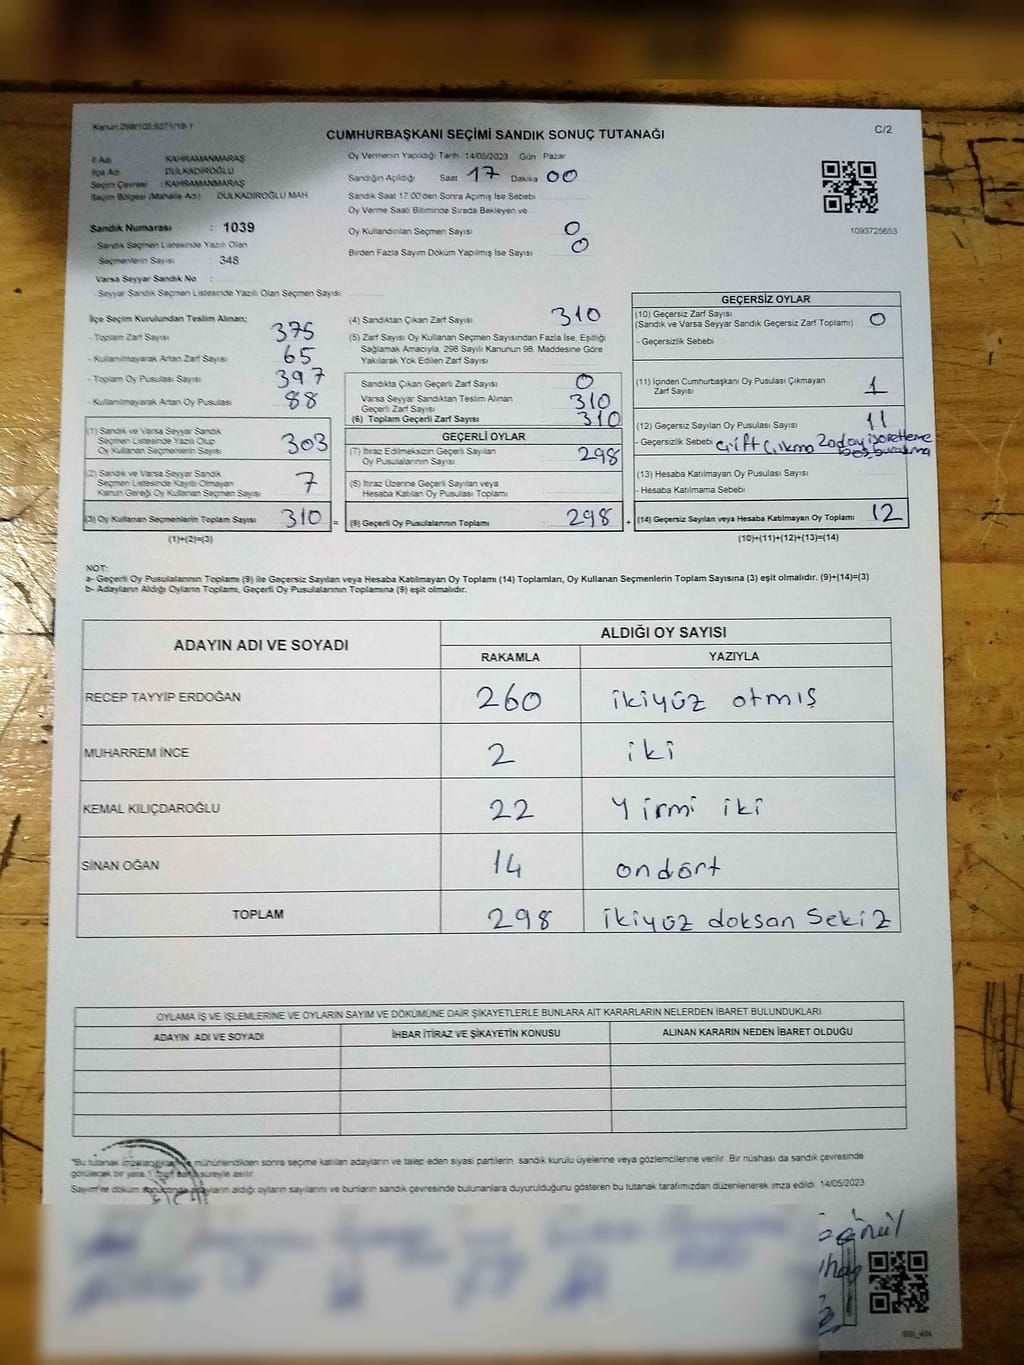 Kanun:298/105,6271/18-1
CUMHURBAŞKANI SEÇİMİ SANDIK SONUÇ TUTANAĞI
C/2
İl Adı KAHRAMANMARAŞ
İlçe Adı DULKADİROĞLU
Seçim Çevresi : KAHRAMANMARAŞ
Seçim Bölgesi (Mahalle Adı) DULKADİROĞLU MAH.
Oy Vermenin Yapıldığı Tarih 14/05/2023 Gün Pazar
Sandığın Açıldığı Saat 17 Dakika 00
Sandık Saat 17:00'den Sonra Açımış İse Sebebi
Oy Verme Saati Bitiminde Sırada Bekleyen ve
Oy Kullandırılan Seçmen Sayısı 0
Birden Fazla Sayım Döküm Yapılmış İse Sayısı 0
1093725653
Sandık Numarası : 1039
- Sandık Seçmen Listesinde Yazılı Olan
Seçmenlerin Sayısı : 348
Varsa Seyyar Sandık No :
- Seyyar Sandık Seçmen Listesinde Yazılı Olan Seçmen Sayısı
İlçe Seçim Kurulundan Teslim Alınan;
- Toplam Zarf Sayısı 375
- Kullanılmayarak Artan Zarf Sayısı 65
- Toplam Oy Pusulası Sayısı 397
- Kullanılmayarak Artan Oy Pusulası 88
(1) Sandık ve Varsa Seyyar Sandık
Seçmen Listesinde Yazılı Olup
Oy Kullanan Seçmen Sayısı 303
(2) Sandık ve Varsa Seyyar Sandık
Seçmen Listesinde Kayıtlı Olmayan
Kanun Gereği Oy Kullanan Seçmen Sayısı 7
(3) Oy Kullanan Seçmenlerin Toplam Sayısı 310 =
(1)+(2)=(3)
(4) Sandıktan Çıkan Zarf Sayısı 310
(5) Zarf Sayısı Oy Kullanan Seçmen Sayısından Fazla İse, Eşitliği
Sağlamak Amacıyla, 298 Sayılı Kanunun 98. Maddesine Göre
Yakılarak Yok Edilen Zarf Sayısı
Sandıkta Çıkan Geçerli Zarf Sayısı 0
Varsa Seyyar Sandıktan Teslim Alınan
Geçerli Zarf Sayısı 310
(6) Toplam Geçerli Zarf Sayısı 310
GEÇERLİ OYLAR
(7) İtiraz Edilmeksizin Geçerli Sayılan
Oy Pusulalarının Sayısı 298
(8) İtiraz Üzerine Geçerli Sayılan veya
Hesaba Katılan Oy Pusulası Toplamı
(9) Geçerli Oy Pusulalarının Toplamı : 298 +
GEÇERSİZ OYLAR
(10) Geçersiz Zarf Sayısı
(Sandık ve Varsa Seyyar Sandık Geçersiz Zarf Toplamı) 0
- Geçersizlik Sebebi
(11) İçinden Cumhurbaşkanı Oy Pusulası Çıkmayan
Zarf Sayısı 1
(12) Geçersiz Sayılan Oy Pusulası Sayısı 11
- Geçersizlik Sebebi Çift Çıkma 2aday işaretleme
boş bırakma
(13) Hesaba Katılmayan Oy Pusulası Sayısı
- Hesaba Katılmama Sebebi
(14) Geçersiz Sayılan veya Hesaba Katılmayan Oy Toplamı 12
(10)+(11)+(12)+(13)=(14)
NOT:
a- Geçerli Oy Pusulalarının Toplamı (9) ile Geçersiz Sayılan veya Hesaba Katılmayan Oy Toplamı (14) Toplamları, Oy Kullanan Seçmenlerin Toplam Sayısına (3) eşit olmalıdır. (9)+(14)=(3)
b- Adayların Aldığı Oyların Toplamı, Geçerli Oy Pusulalarının Toplamına (9) eşit olmalıdır.
ADAYIN ADI VE SOYADI
ALDIĞI OY SAYISI
RAKAMLA YAZIYLA
RECEP TAYYİP ERDOĞAN 260 ikiyüz otmış
MUHARREM İNCE 2 iki
KEMAL KILIÇDAROĞLU 22 Yirmi iki
SİNAN OĞAN 14 ondört
TOPLAM 298 ikiyüz doksan Sekiz
OYLAMA İŞ VE İŞLEMLERİNE VE OYLARIN SAYIM VE DÖKÜMÜNE DAİR ŞİKAYETLERLE BUNLARA AİT KARARLARIN NELERDEN İBARET BULUNDUKLARI
ADAYIN ADI VE SOYADI İHBAR İTİRAZ VE ŞİKAYETİN KONUSU ALINAN KARARIN NEDEN İBARET OLDUĞU
"Bu tutanak mühürlendikten sonra seçime katılan adayların ve talep eden siyasi partilerin sandık kurulu üyelerine veya gözlemcilerine verilir. Bir nüshası da sandık çevresinde
görülecek bir yere süreyle asılır.
Sayım ve döküm sonucunda adayların aldığı oyların sayılarını ve bunların sandık çevresinde bulunanlara duyurulduğunu gösteren bu tutanak tarafımızdan düzenlenerek imza edildi. 14/05/2023